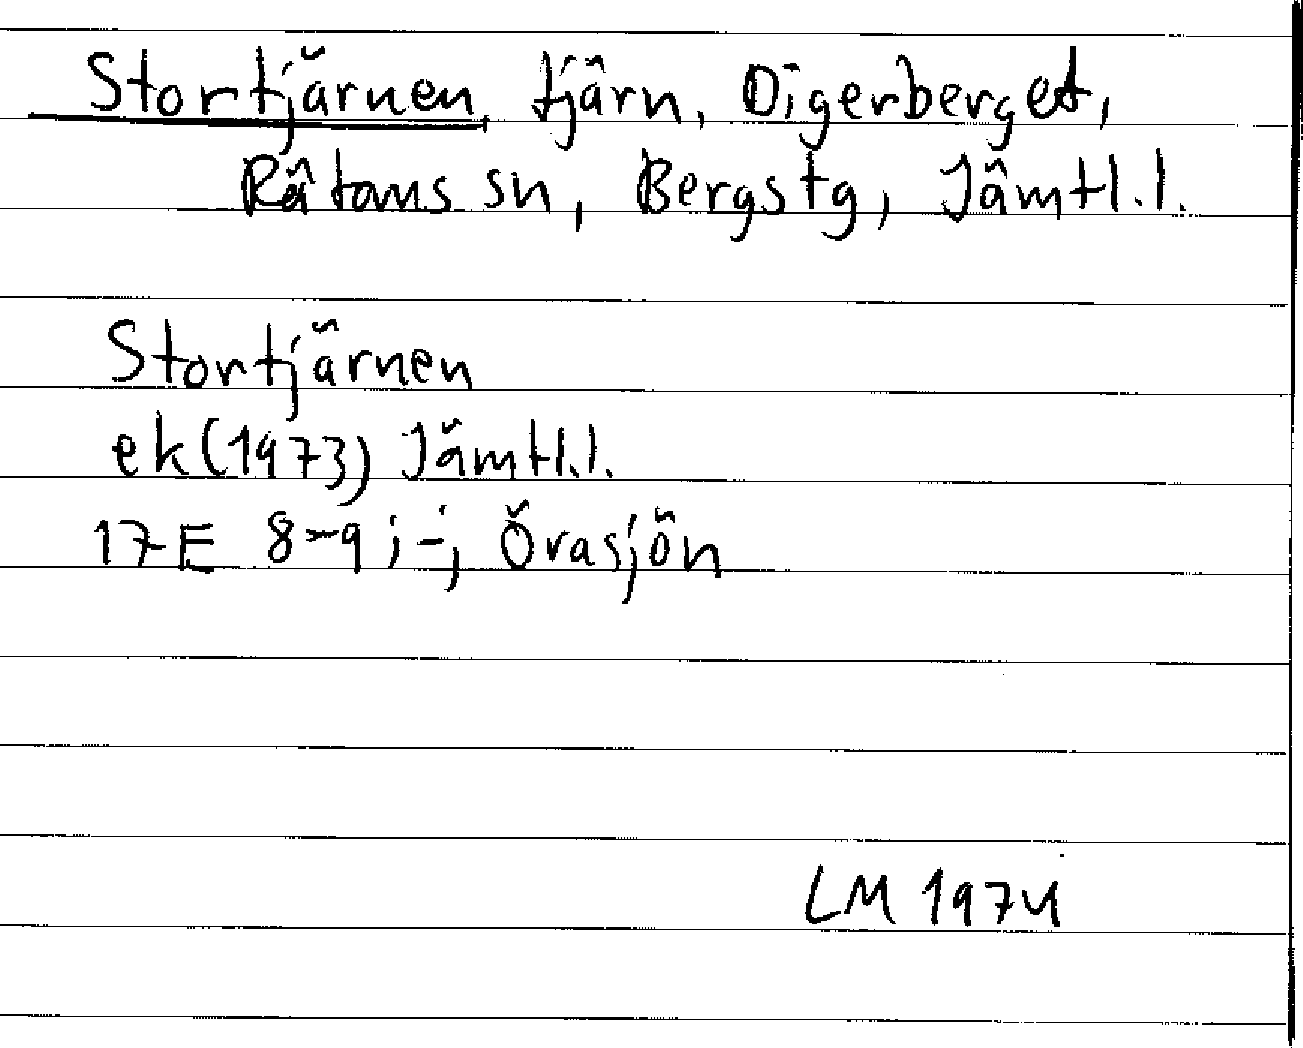 Stortjärnen, tjärn, Digerberget,
Rätans sn, Bergs tg, Jämtl.l.
Stortjärnen
ek(1973) Jämtl.l.
17E 8-9 i-j Örasjön
LM 1974